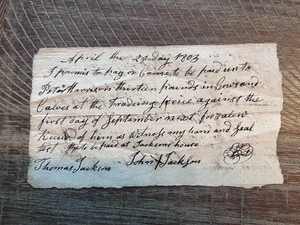 April the 22 day 1803
I promis to pay or Cause to be paid unto
Peter Harrison thirteen pounds in Cows and
Calves at the Trading price against the
first day of September next for value
Receivd of him as witness my hand and Seal
test to be paid at Jacksons house
Thomas Jackson John Jackson